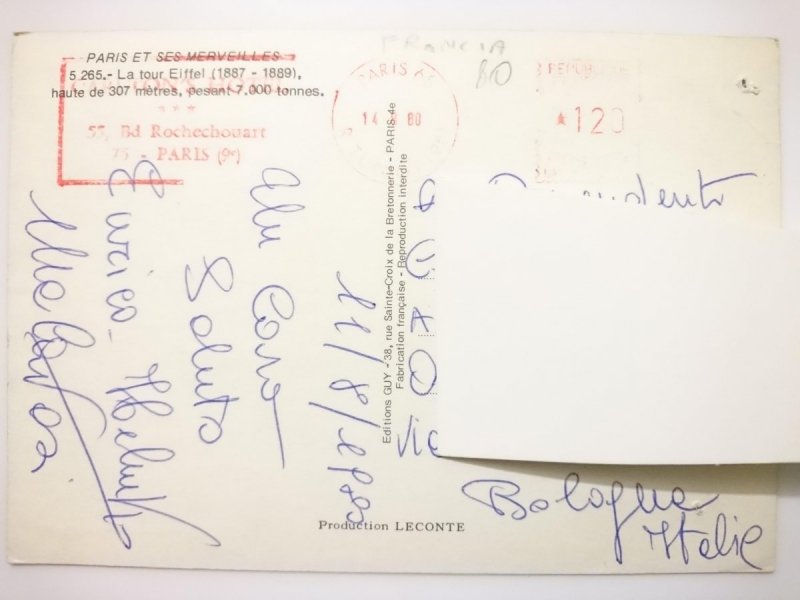 FRANCIA
80
PARIS ET SES MERVEILLES
5 265.- La tour Eiffel (1887 - 1889),
haute de 307 mètres, pesant 7.000 tonnes.
***
55, Bd Rochechouart
75 - PARIS (9e)
PARIS
14 8 80
REPUBLIQUE
120
Un Caro
Saluto
Enrico
11/8/1980
Editions GUY - 38, rue Sainte-Croix de la Bretonnerie - PARIS 4e
Fabrication française - Reproduction interdite
Via
Bologna
Italie
Production LECONTE